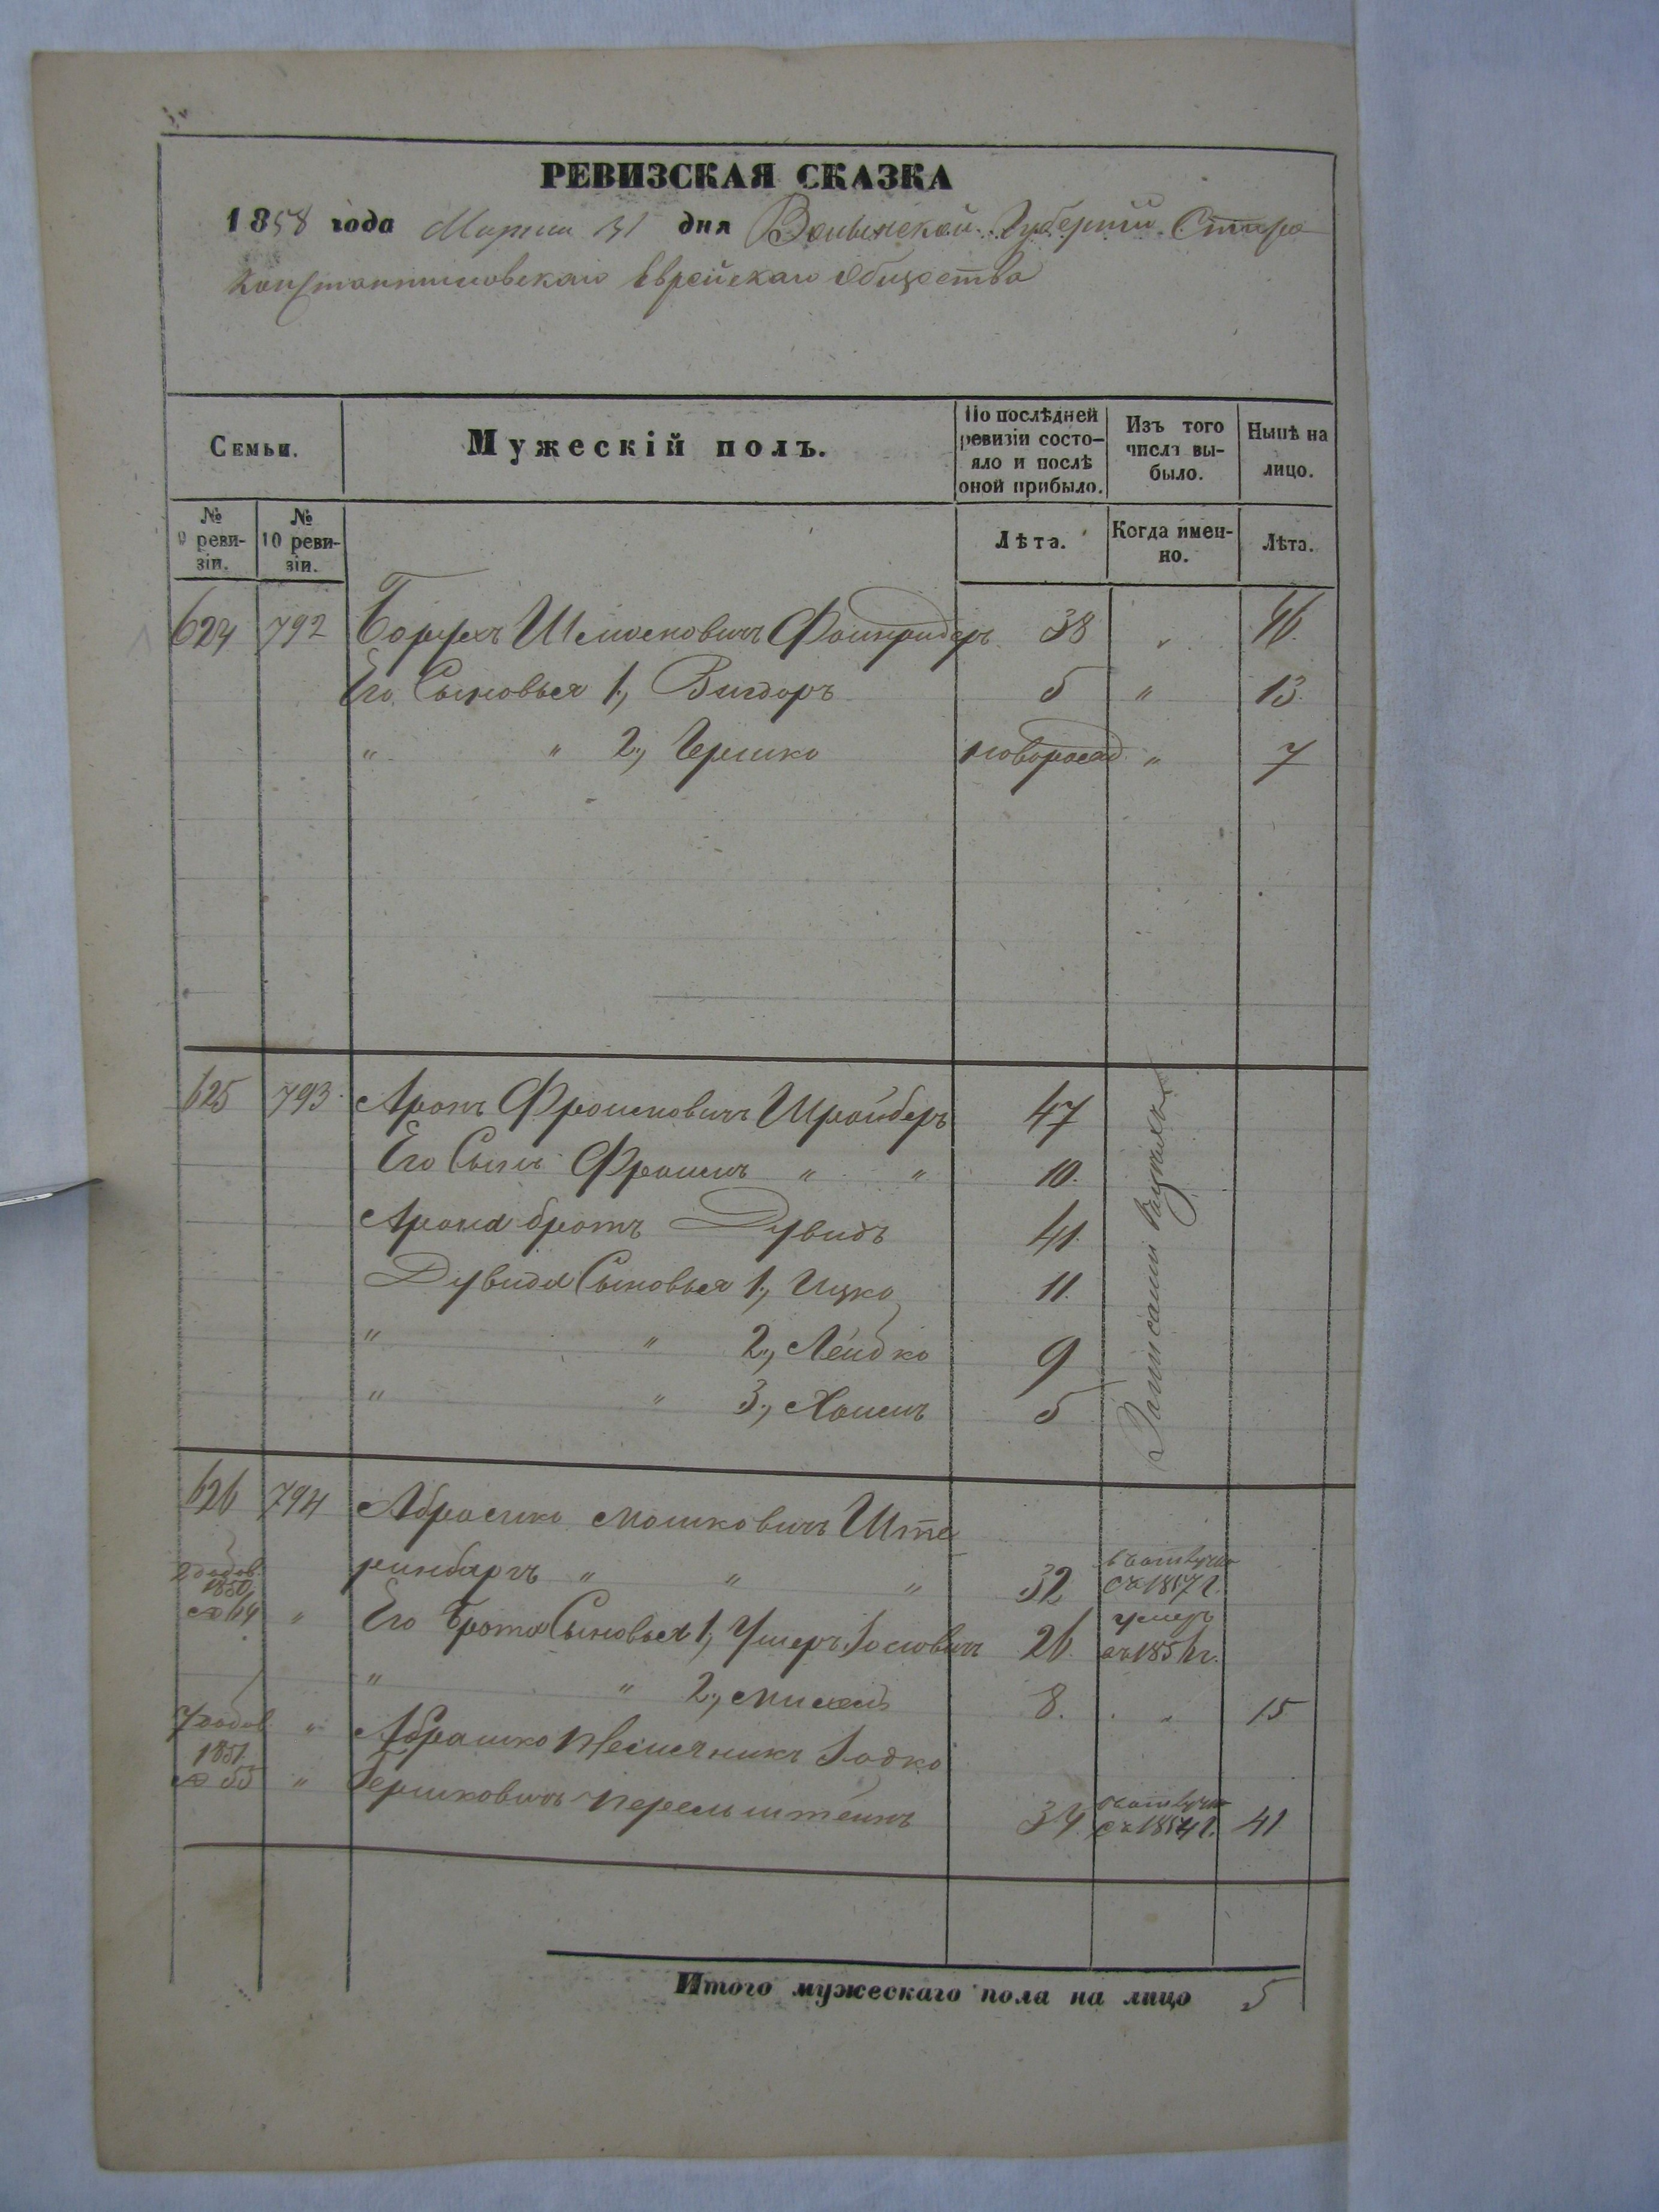 РЕВИЗСКАЯ СКАЗКА
1858 года Марта 31 дня Волынской Губернии Старо
Константиновскаго Еврейскаго Общества
Семьи.
Мужескій полъ.
По послѣдней ревизіи состо-яло и послѣ оной прибыло.
Изъ того числа вы-было.
Нынѣ на лицо.
№ 9 реви-зіи.
№ 10 реви-зіи.
Лѣта.
Когда имен-но.
Лѣта.
624 792 Борухъ Шмоелевичъ 38 " 46.
Его Сыновья 1., Вигдоръ 5 " 13.
" " 2., Гершко новорожд " 7
625 793 Аронъ Фроимовичъ Шрайберъ 47
Его Сынъ Фроимъ " " 10.
Арона братъ Дувидъ 41.
Дувида Сыновья 1., Ицко 11.
" " 2., Лейбко 9
" " 3., Хаимъ 5
Записаны
626 794 Абрамко Мошковичъ Ште
ринбаргъ " " " 32 съ 1857 г.
2 додов. 1850 № 64 " Его Брата Сыновья 1., Ушеръ Іосіовичъ 26. умеръ въ 1856 г.
" " 2., Михель 8. " 15
7 додов 1851 № 55 " Абрашко Племянникъ Іодко
" Гершковичъ Перельштейнъ 34 съ 1854 г. 41
Итого мужескаго пола на лицо 5